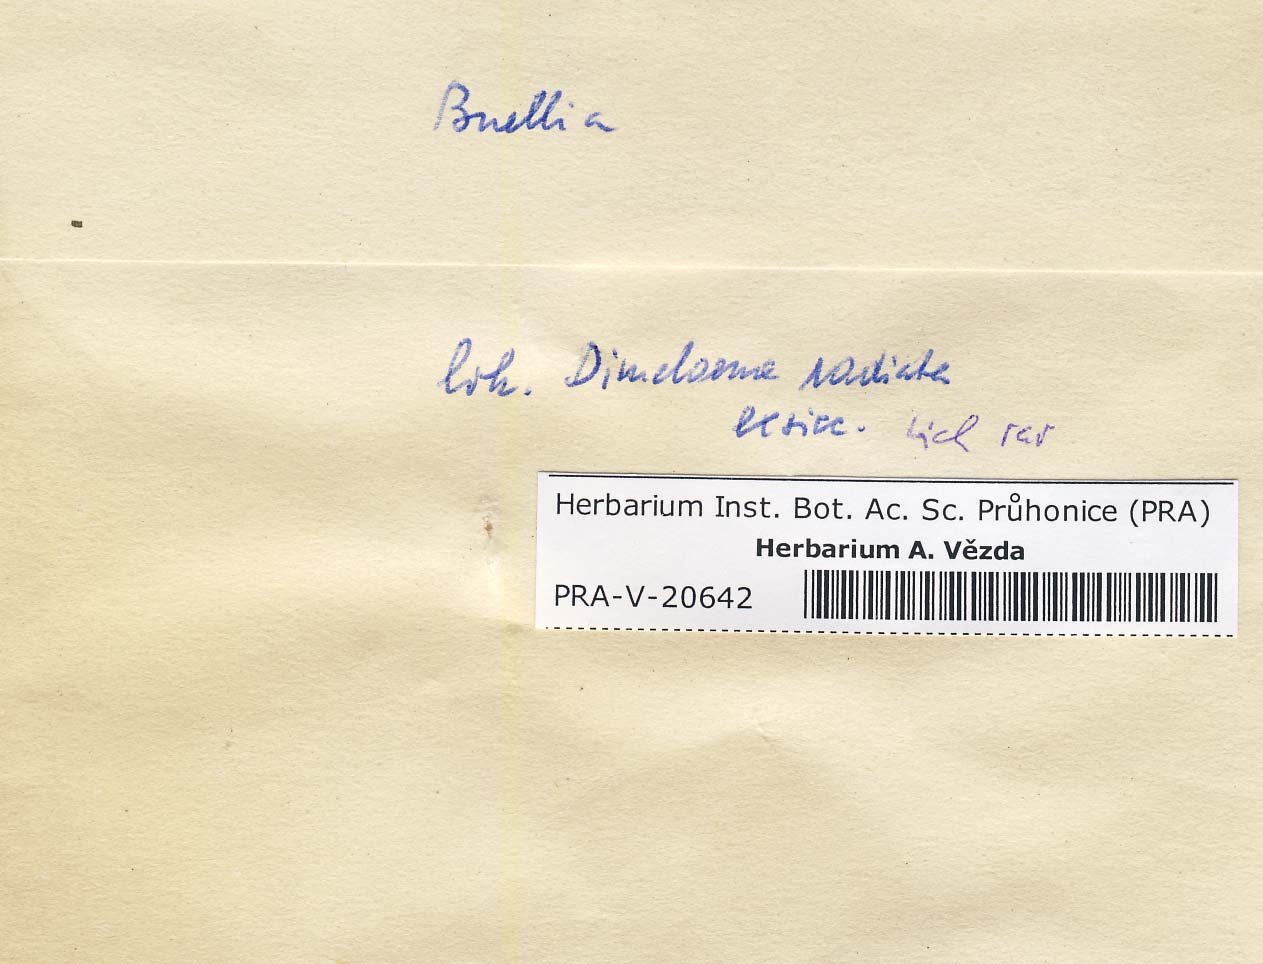 Buellia
lok. Dimelaena radiata
exsicc. Lich rar
Herbarium Inst. Bot. Ac. Sc. Průhonice (PRA)
Herbarium A. Vězda
PRA-V-20642